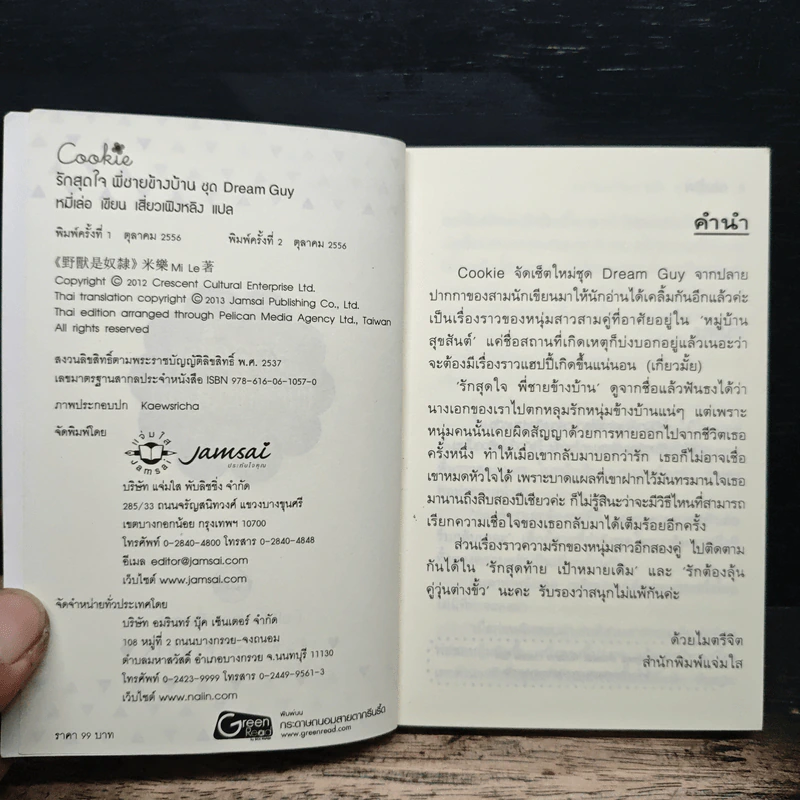 Cookie
รักสุดใจ พี่ชายข้างบ้าน ชุด Dream Guy
หมี่เล่อ เขียน เสี่ยวเฟิงหลิง แปล
พิมพ์ครั้งที่ 1 ตุลาคม 2556 พิมพ์ครั้งที่ 2 ตุลาคม 2556
《野獸是奴隸》米樂 Mi Le 著
Copyright © 2012 Crescent Cultural Enterprise Ltd.
Thai translation copyright © 2013 Jamsai Publishing Co., Ltd.
Thai edition arranged through Pelican Media Agency Ltd., Taiwan
All rights reserved
สงวนลิขสิทธิ์ตามพระราชบัญญัติลิขสิทธิ์ พ.ศ. 2537
เลขมาตรฐานสากลประจำหนังสือ ISBN 978-616-06-1057-0
ภาพประกอบปก Kaewsricha
จัดพิมพ์โดย
แจ่มใส
Jamsai
Jamsai
ประทับใจคุณ
บริษัท แจ่มใส พับลิชชิ่ง จำกัด
285/33 ถนนจรัญสนิทวงศ์ แขวงบางขุนศรี
เขตบางกอกน้อย กรุงเทพฯ 10700
โทรศัพท์ 0-2840-4800 โทรสาร 0-2840-4848
อีเมล editor@jamsai.com
เว็บไซต์ www.jamsai.com
จัดจำหน่ายทั่วประเทศโดย
บริษัท อมรินทร์ บุ๊ค เซ็นเตอร์ จำกัด
108 หมู่ที่ 2 ถนนบางกรวย-จงถนอม
ตำบลมหาสวัสดิ์ อำเภอบางกรวย จ.นนทบุรี 11130
โทรศัพท์ 0-2423-9999 โทรสาร 0-2449-9561-3
เว็บไซต์ www.naiin.com
Green Read
พิมพ์บน
กระดาษถนอมสายตากรีนรี้ด
www.greenread.com
ราคา 99 บาท
คำนำ
Cookie จัดเซ็ตใหม่ชุด Dream Guy จากปลาย
ปากกาของสามนักเขียนมาให้นักอ่านได้เคลิ้มกันอีกแล้วค่ะ
เป็นเรื่องราวของหนุ่มสาวสามคู่ที่อาศัยอยู่ใน 'หมู่บ้าน
สุขสันต์' แค่ชื่อสถานที่เกิดเหตุก็บ่งบอกอยู่แล้วเนอะว่า
จะต้องมีเรื่องราวแฮปปี้เกิดขึ้นแน่นอน (เกี่ยวมั้ย)
'รักสุดใจ พี่ชายข้างบ้าน' ดูจากชื่อแล้วฟันธงได้ว่า
นางเอกของเราไปตกหลุมรักหนุ่มข้างบ้านแน่ๆ แต่เพราะ
หนุ่มคนนั้นเคยผิดสัญญาด้วยการหายออกไปจากชีวิตเธอ
ครั้งหนึ่ง ทำให้เมื่อเขากลับมาบอกว่ารัก เธอก็ไม่อาจเชื่อ
เขาหมดหัวใจได้ เพราะบาดแผลที่เขาฝากไว้มันทรมานใจเธอ
มานานถึงสิบสองปีเชียวค่ะ ก็ไม่รู้สินะว่าจะมีวิธีไหนที่สามารถ
เรียกความเชื่อใจของเธอกลับมาได้เต็มร้อยอีกครั้ง
ส่วนเรื่องราวความรักของหนุ่มสาวอีกสองคู่ ไปติดตาม
กันได้ใน 'รักสุดท้าย เป้าหมายเดิม' และ 'รักต้องลุ้น
คู่วุ่นต่างขั้ว' นะคะ รับรองว่าสนุกไม่แพ้กันค่ะ
ด้วยไมตรีจิต
สำนักพิมพ์แจ่มใส